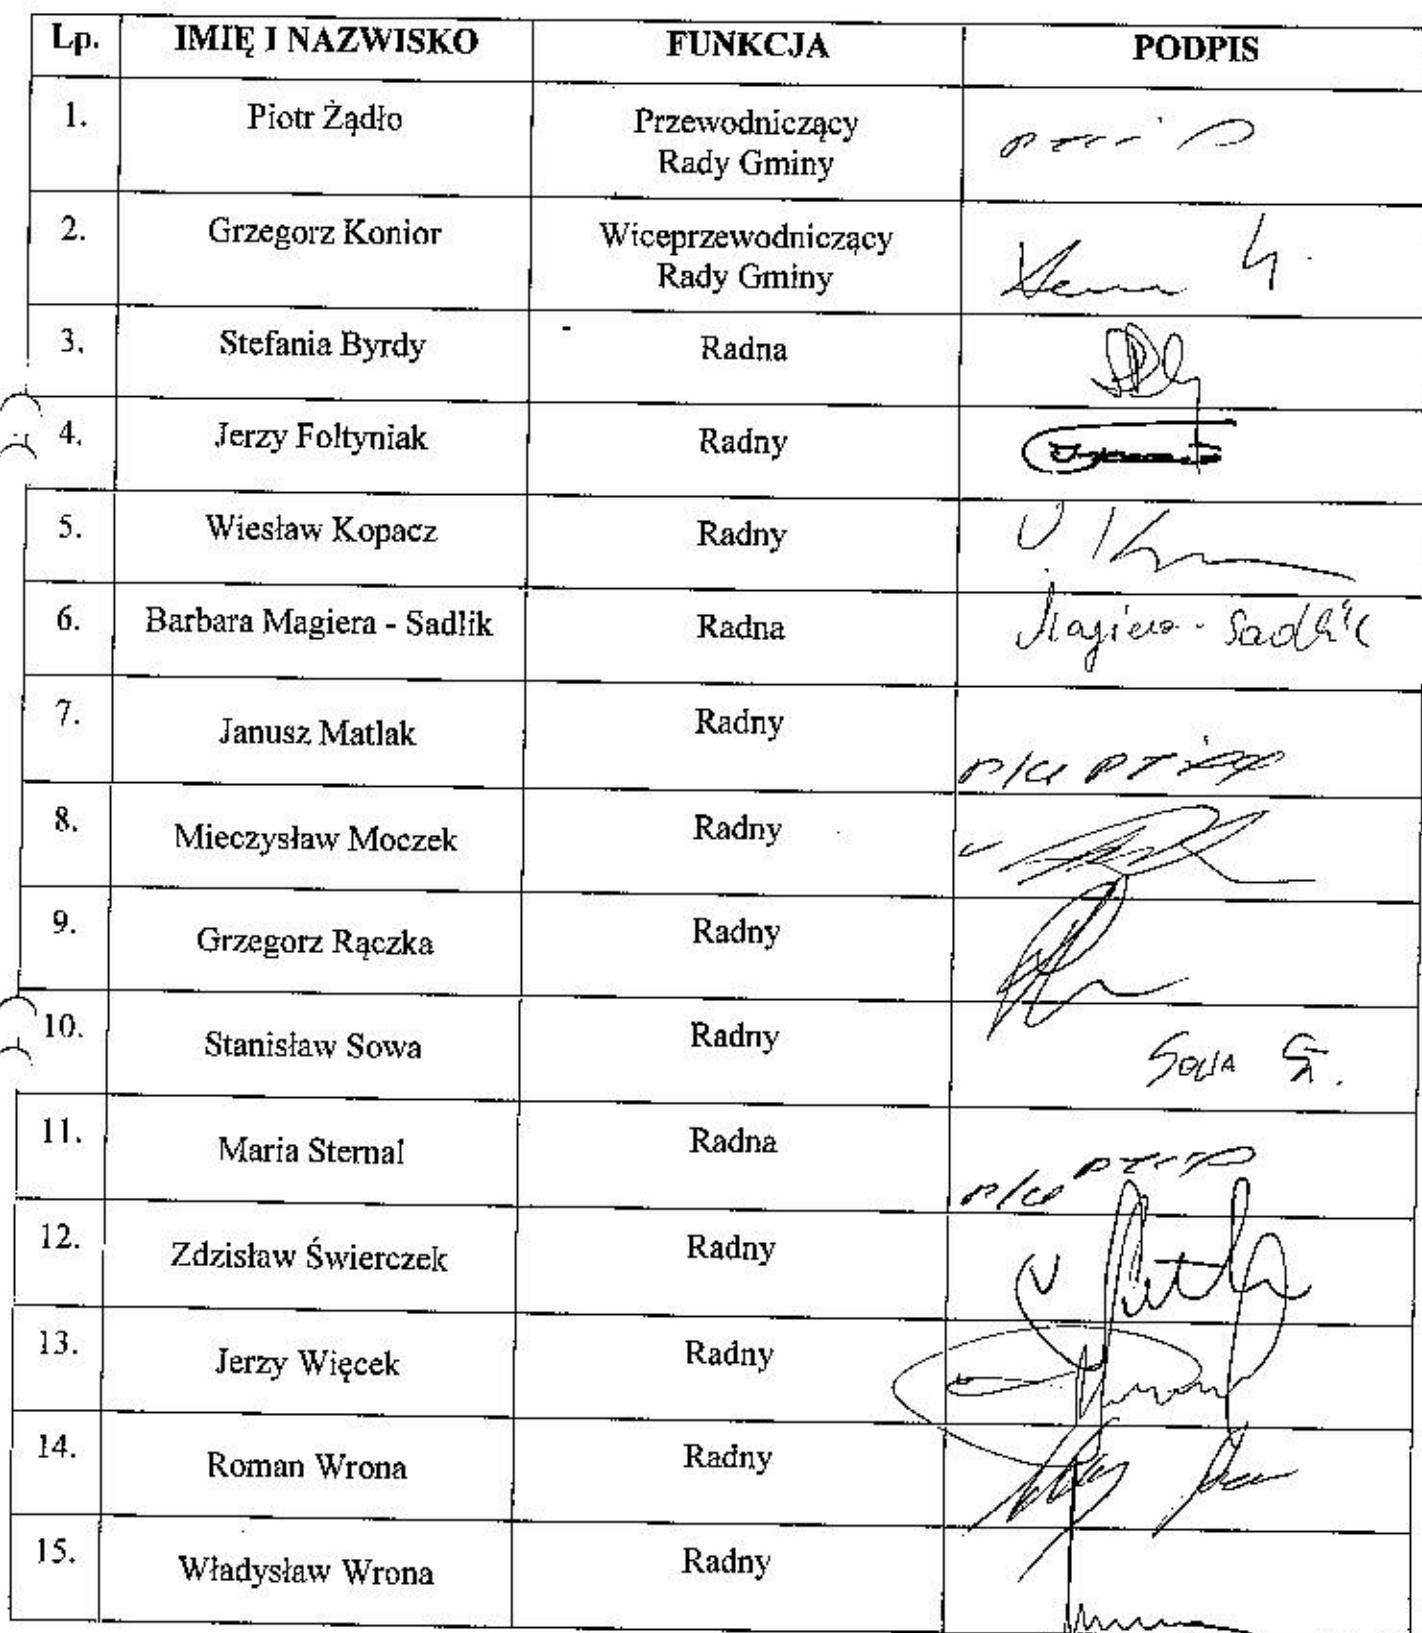 Lp. IMIĘ I NAZWISKO FUNKCJA PODPIS
1. Piotr Żądło Przewodniczący
Rady Gminy
2. Grzegorz Konior Wiceprzewodniczący
Rady Gminy
3. Stefania Byrdy Radna
4. Jerzy Fołtyniak Radny
5. Wiesław Kopacz Radny
6. Barbara Magiera - Sadlik Radna Magiera - Sadlik
7. Janusz Matlak Radny
8. Mieczysław Moczek Radny
9. Grzegorz Rączka Radny
10. Stanisław Sowa Radny Sowa S.
11. Maria Sternal Radna
12. Zdzisław Świerczek Radny
13. Jerzy Więcek Radny
14. Roman Wrona Radny
15. Władysław Wrona Radny